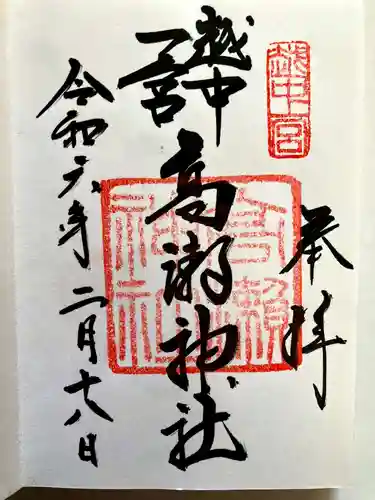 奉拝
越中宮
越中
一宮
高瀬神社
高瀬神社
令和六年二月十八日